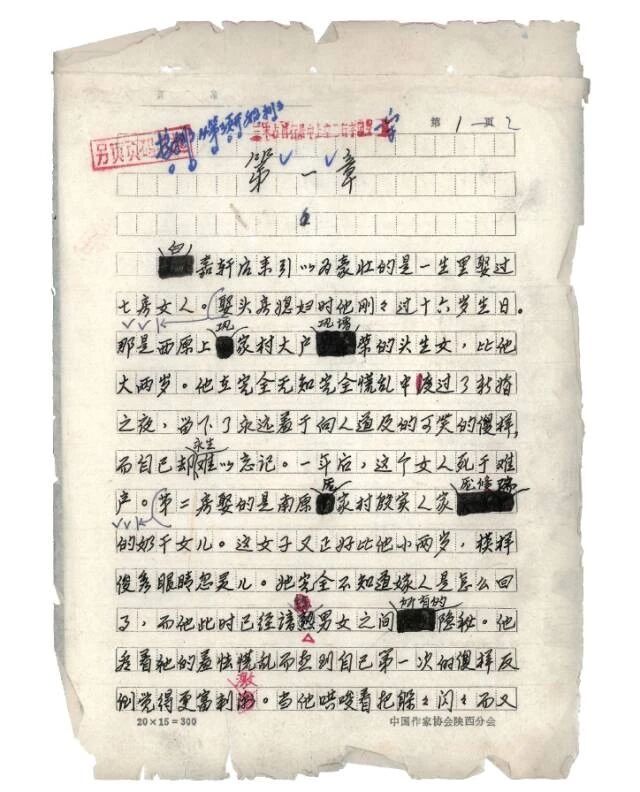 第1页
另页页码
第一章
白嘉轩后来引以为豪壮的是一生里娶过
七房女人。娶头房媳妇时他刚々过十六岁生日。
那是西原上巩家村大户巩增荣的头生女，比他
大两岁。他在完全无知完全慌乱中渡过了新婚
之夜，留下了永远羞于向人道及的可笑的傻样，
而自己却永生难以忘记。一年后，这个女人死于难
产。第二房娶的是南原庞家村殷实人家庞修瑞
的奶干女儿。这女子又正好比他小两岁，模样
俊秀眼睛忽灵儿。她完全不知道嫁人是怎么回
事，而他此时已经谙熟男女之间所有的隐秘。他
看着她的羞怯慌乱而想到自己第一次的傻样反
倒觉得更富刺激。当他哄唆着把躲々闪々而又
20×15=300
中国作家协会陕西分会